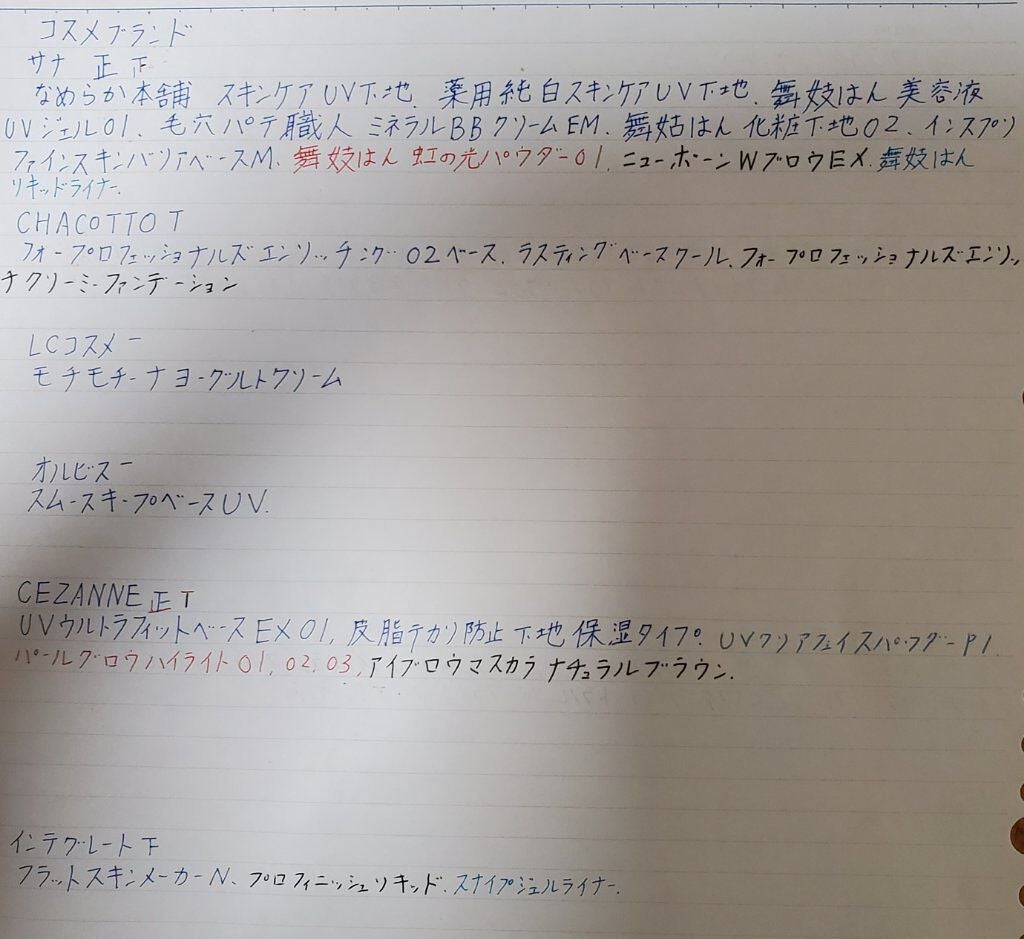 コスメブランド
サナ 正 下
なめらか本舗 スキンケアUV下地、薬用純白スキンケアUV下地、舞妓はん 美容液
UVジェル01、毛穴パテ職人 ミネラルBBクリームEM、舞妓はん 化粧下地02、インスプリ
ファインスキンバリアベースM、舞妓はん 虹の光パウダー01、ニューボーンWブロウEX、舞妓はん
リキッドライナー.
CHACOTTO T
フォープロフェッショナルズエンリッチング 02ベース、ラスティングベースクール、フォープロフェッショナルズエンリッ
チクリーミーファンデーション
LCコスメ 一
モチモチーナヨーグルトクリーム
オルビス 一
スムースキープベースUV.
CEZANNE 正 T
UVウルトラフィットベースEX01, 皮脂テカリ防止下地 保湿タイプ. UVクリアフェイスパウダーP1.
パールグロウハイライト01, 02. 03, アイブロウマスカラ ナチュラルブラウン.
インテグレート 下
フラットスキンメーカーN、プロフィニッシュリキッド、スナイプジェルライナー.